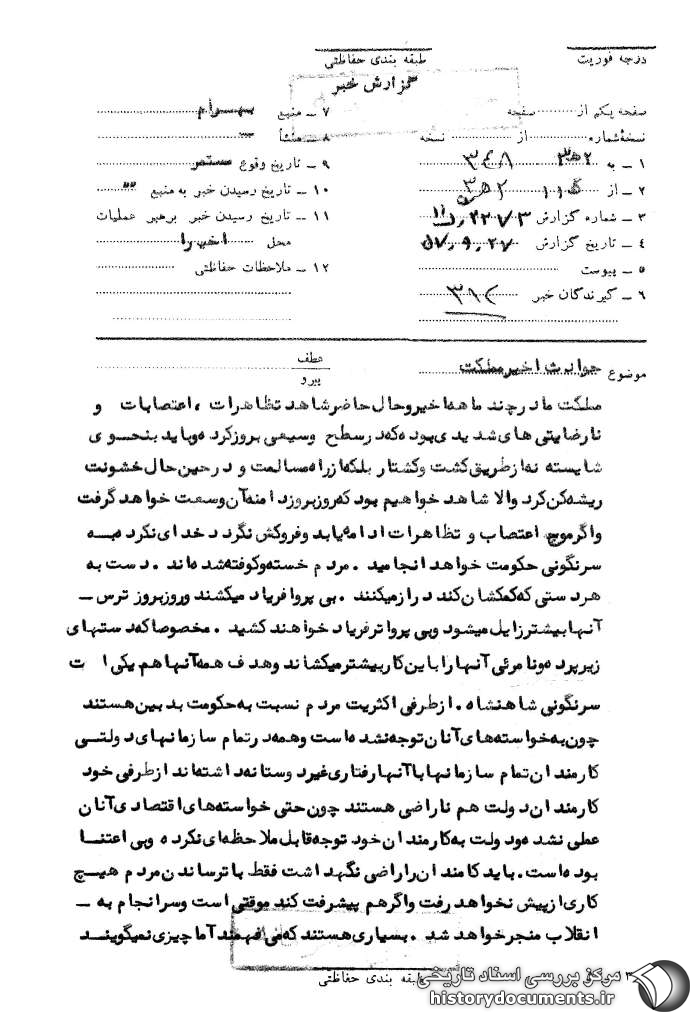 درجه فوریت
طبقه بندی حفاظتی
گزارش خبر
صفحه یکم از صفحه
نسخه شماره از نسخه
۱ ـ به ۳۵۲ ۳۴۸
۲ ـ از ۳۵۲
۳ ـ شماره گزارش
۴ ـ تاریخ گزارش ۵۷٫۹٫۲۷
۵ ـ پیوست
۶ ـ گیرندگان خبر
۷ ـ منبع بهرام
۸ ـ منشأ
۹ ـ تاریخ وقوع مستمر
۱۰ ـ تاریخ رسیدن خبر به منبع ""
۱۱ ـ تاریخ رسیدن خبر برهبر عملیات
محل اخیرا
۱۲ ـ ملاحظات حفاظتی
موضوع حوادث اخیر مملکت
عطف
پیرو
مملکت ما در چند ماهه اخیر و حال حاضر شاهد تظاهرات ، اعتصابات و
نارضایتی های شدیدی بوده که در سطح وسیعی بروز کرده و باید بنحوی
شایسته نه از طریق کشت و کشتار بلکه از راه مسالمت و در حین حال خشونت
ریشه کن کرد والا شاهد خواهیم بود که روز بروز دامنه آن وسعت خواهد گرفت
و اگر موج اعتصاب و تظاهرات ادامه یابد و فروکش نگردد خدای نکرده به
سرنگونی حکومت خواهد انجامید . مردم خسته و کوفته شده اند . دست به
هر دستی که کمکشان کند دراز میکنند . بی پروا فریاد میکشند و روز بروز ترس ـ
آنها بیشتر زایل میشود و بی پرواتر فریاد خواهند کشید . مخصوصا که دستهای
زیر پرده و نامرئی آنها را باین کار بیشتر میکشاند و هدف همه آنها هم یکی است
سرنگونی شاهنشاه . از طرفی اکثریت مردم نسبت به حکومت بدبین هستند
چون به خواسته های آنان توجه نشده است و همه در تمام سازمانهای دولتی
کارمندان تمام سازمانها با آنها رفتاری غیر دوستانه داشته اند از طرفی خود
کارمندان دولت هم ناراضی هستند چون حتی خواسته های اقتصادی آنان
عملی نشده و دولت به کارمندان خود توجه قابل ملاحظه ای نکرده و بی اعتنا
بوده است . باید کامندان را راضی نگهداشت فقط با ترساندن مردم هیچ
کاری از پیش نخواهد رفت و اگر هم پیشرفت کند موقتی است و سرانجام به ـ
انقلاب منجر خواهد شد . بسیاری هستند که می فهمند اما چیزی نمیگویند
طبقه بندی حفاظتی
مرکز بررسی اسناد تاریخی
historydocuments.ir